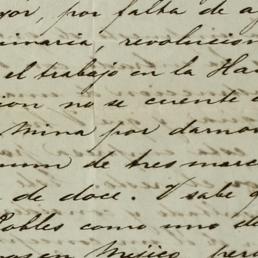 yor, por falta de a
uinaria, revolucion
el trabajo en la Ha
cion no se cuente
Mina por darno
mum de tres marc
de doce. V sabe q
Robles como uno d
os en Mejico, pero